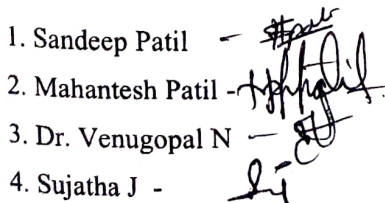 1. Sandeep Patil -
2. Mahantesh Patil -
3. Dr. Venugopal N -
4. Sujatha J -